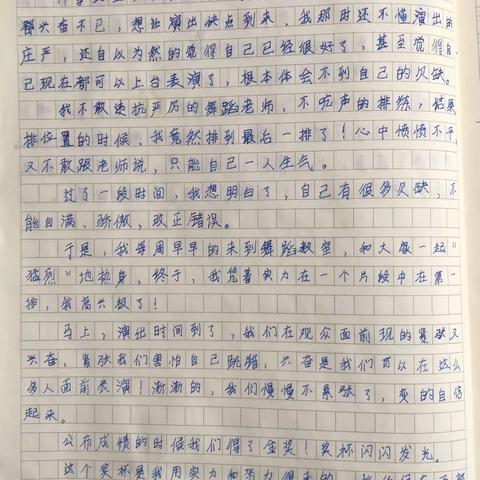 都兴奋不已，想让演出快点到来，我那时还不懂演出的
庄严，还自以为然的觉得自己已经很好了，甚至觉得自
己现在都可以上台表演了，根本体会不到自己的欠缺。
我不敢违抗严厉的舞蹈老师，不吭声的排练，结果
排位置的时候，我竟然排到最后一排了！心中愤愤不平
又不敢跟老师说，只能自己一人生气。
过了一段时间，我想明白了，自己有很多欠缺，不
能自满、骄傲，改正错误。
于是，我每周早早的来到舞蹈教室，和大家一起“
猛烈”地热身，终于，我凭着实力在一个片段中在第一
排，我高兴极了！
马上，演出时间到了，我们在观众面前现的紧张又
兴奋，紧张我们害怕自己跳错，兴奋是我们可以在这么
多人面前表演！渐渐的，我们慢慢不紧张了，变的自信
起来。
公布成绩的时候我们得了金奖！奖杯闪闪发光。
这个奖杯是我用实力和努力得来的